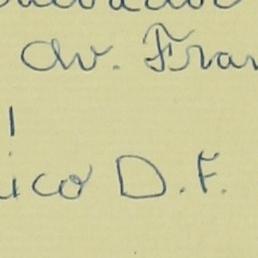 av. Fran
ico D.F.